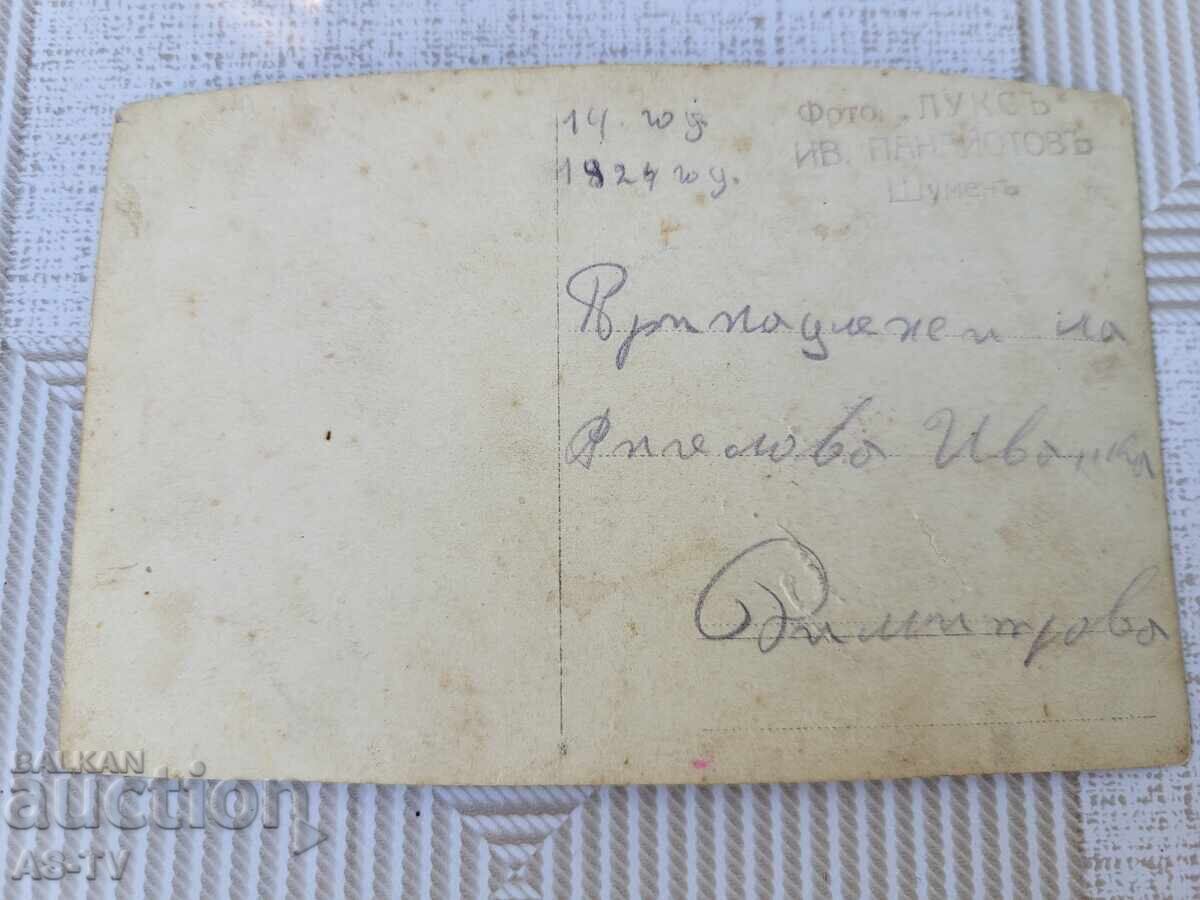 14. год.
1924 год.
Фото „ЛУКСЪ
ИВ. ПАНАЙОТОВЪ
Шуменъ
Принадлежи на
Ангелова Иванка
Димитрова
BALKAN
auction
AS-TV